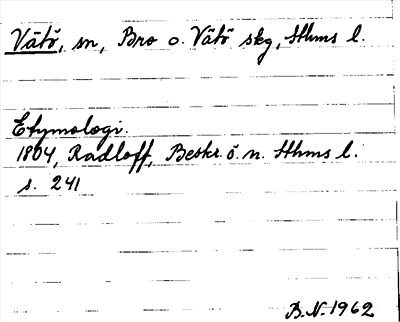 Vätö, sn, Bro o. Vätö skg, Sthms l.
Etymologi.
1804, Radloff, Beskr. ö. n. Sthms l.
s. 241
B.N. 1962